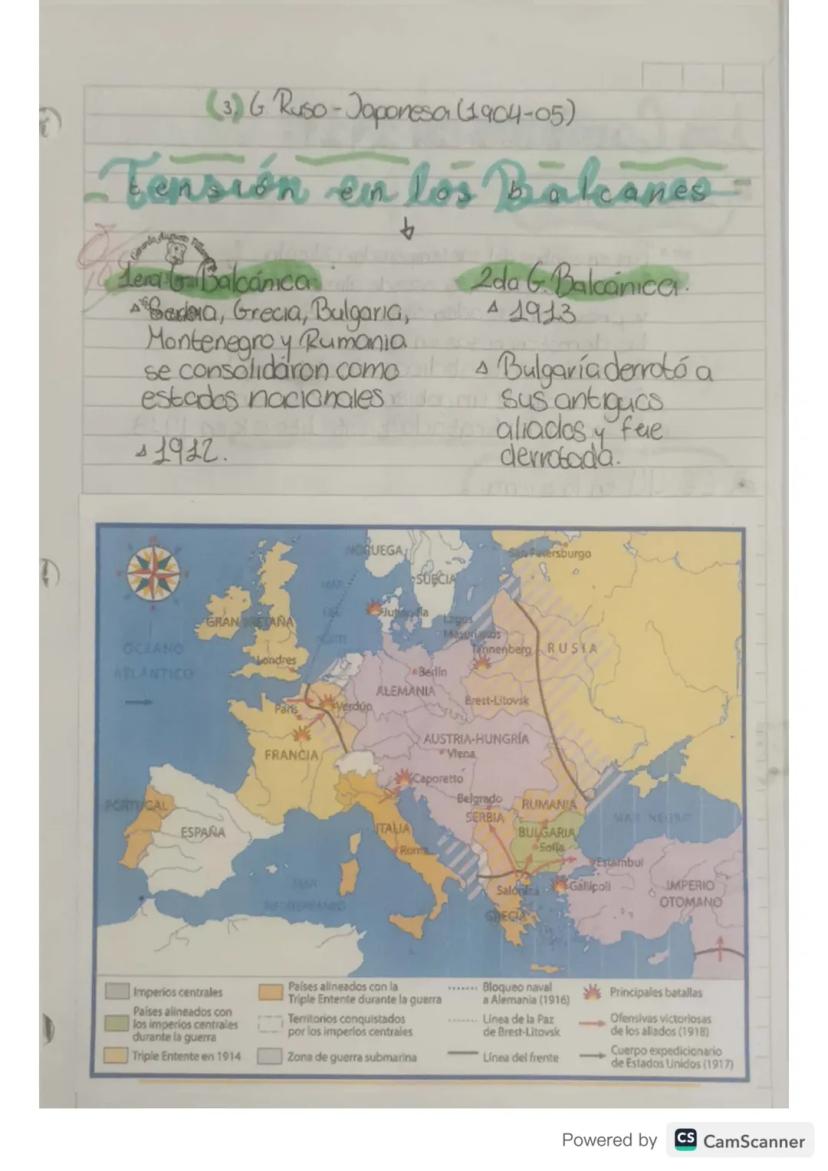 (3) G. Ruso-Japonesa (1904-05)
Tensión en los Balcanes
1era G. Balcánica
Serbia, Grecia, Bulgaria,
Montenegro y Rumania
se consolidaron como
estados nacionales
1912.
2da G. Balcánica.
1913
Bulgaría derrotó a
sus antiguos
aliados y fue
derrotada.
NORUEGA
SUECIA
San Petersburgo
MAR
DEL
NORTE
Jutlandia
Lagos
Masurianos
Tannenberg
RUSIA
GRAN BRETAÑA
OCÉANO
ATLÁNTICO
Londres
Berlín
ALEMANIA
Brest-Litovsk
París
Verdún
FRANCIA
AUSTRIA-HUNGRÍA
Viena
Caporetto
Belgrado
RUMANIA
SERBIA
MAR NEGRO
PORTUGAL
ESPAÑA
ITALIA
Roma
BULGARIA
Sofía
Estambul
Salónica
Gallípoli
IMPERIO
OTOMANO
MAR
MEDITERRÁNEO
GRECIA
Imperios centrales
Países alineados con
los imperios centrales
durante la guerra
Triple Entente en 1914
Países alineados con la
Triple Entente durante la guerra
Territorios conquistados
por los imperios centrales
Zona de guerra submarina
Bloqueo naval
a Alemania (1916)
Línea de la Paz
de Brest-Litovsk
Línea del frente
Principales batallas
Ofensivas victoriosas
de los aliados (1918)
Cuerpo expedicionario
de Estados Unidos (1917)
Powered by CS CamScanner